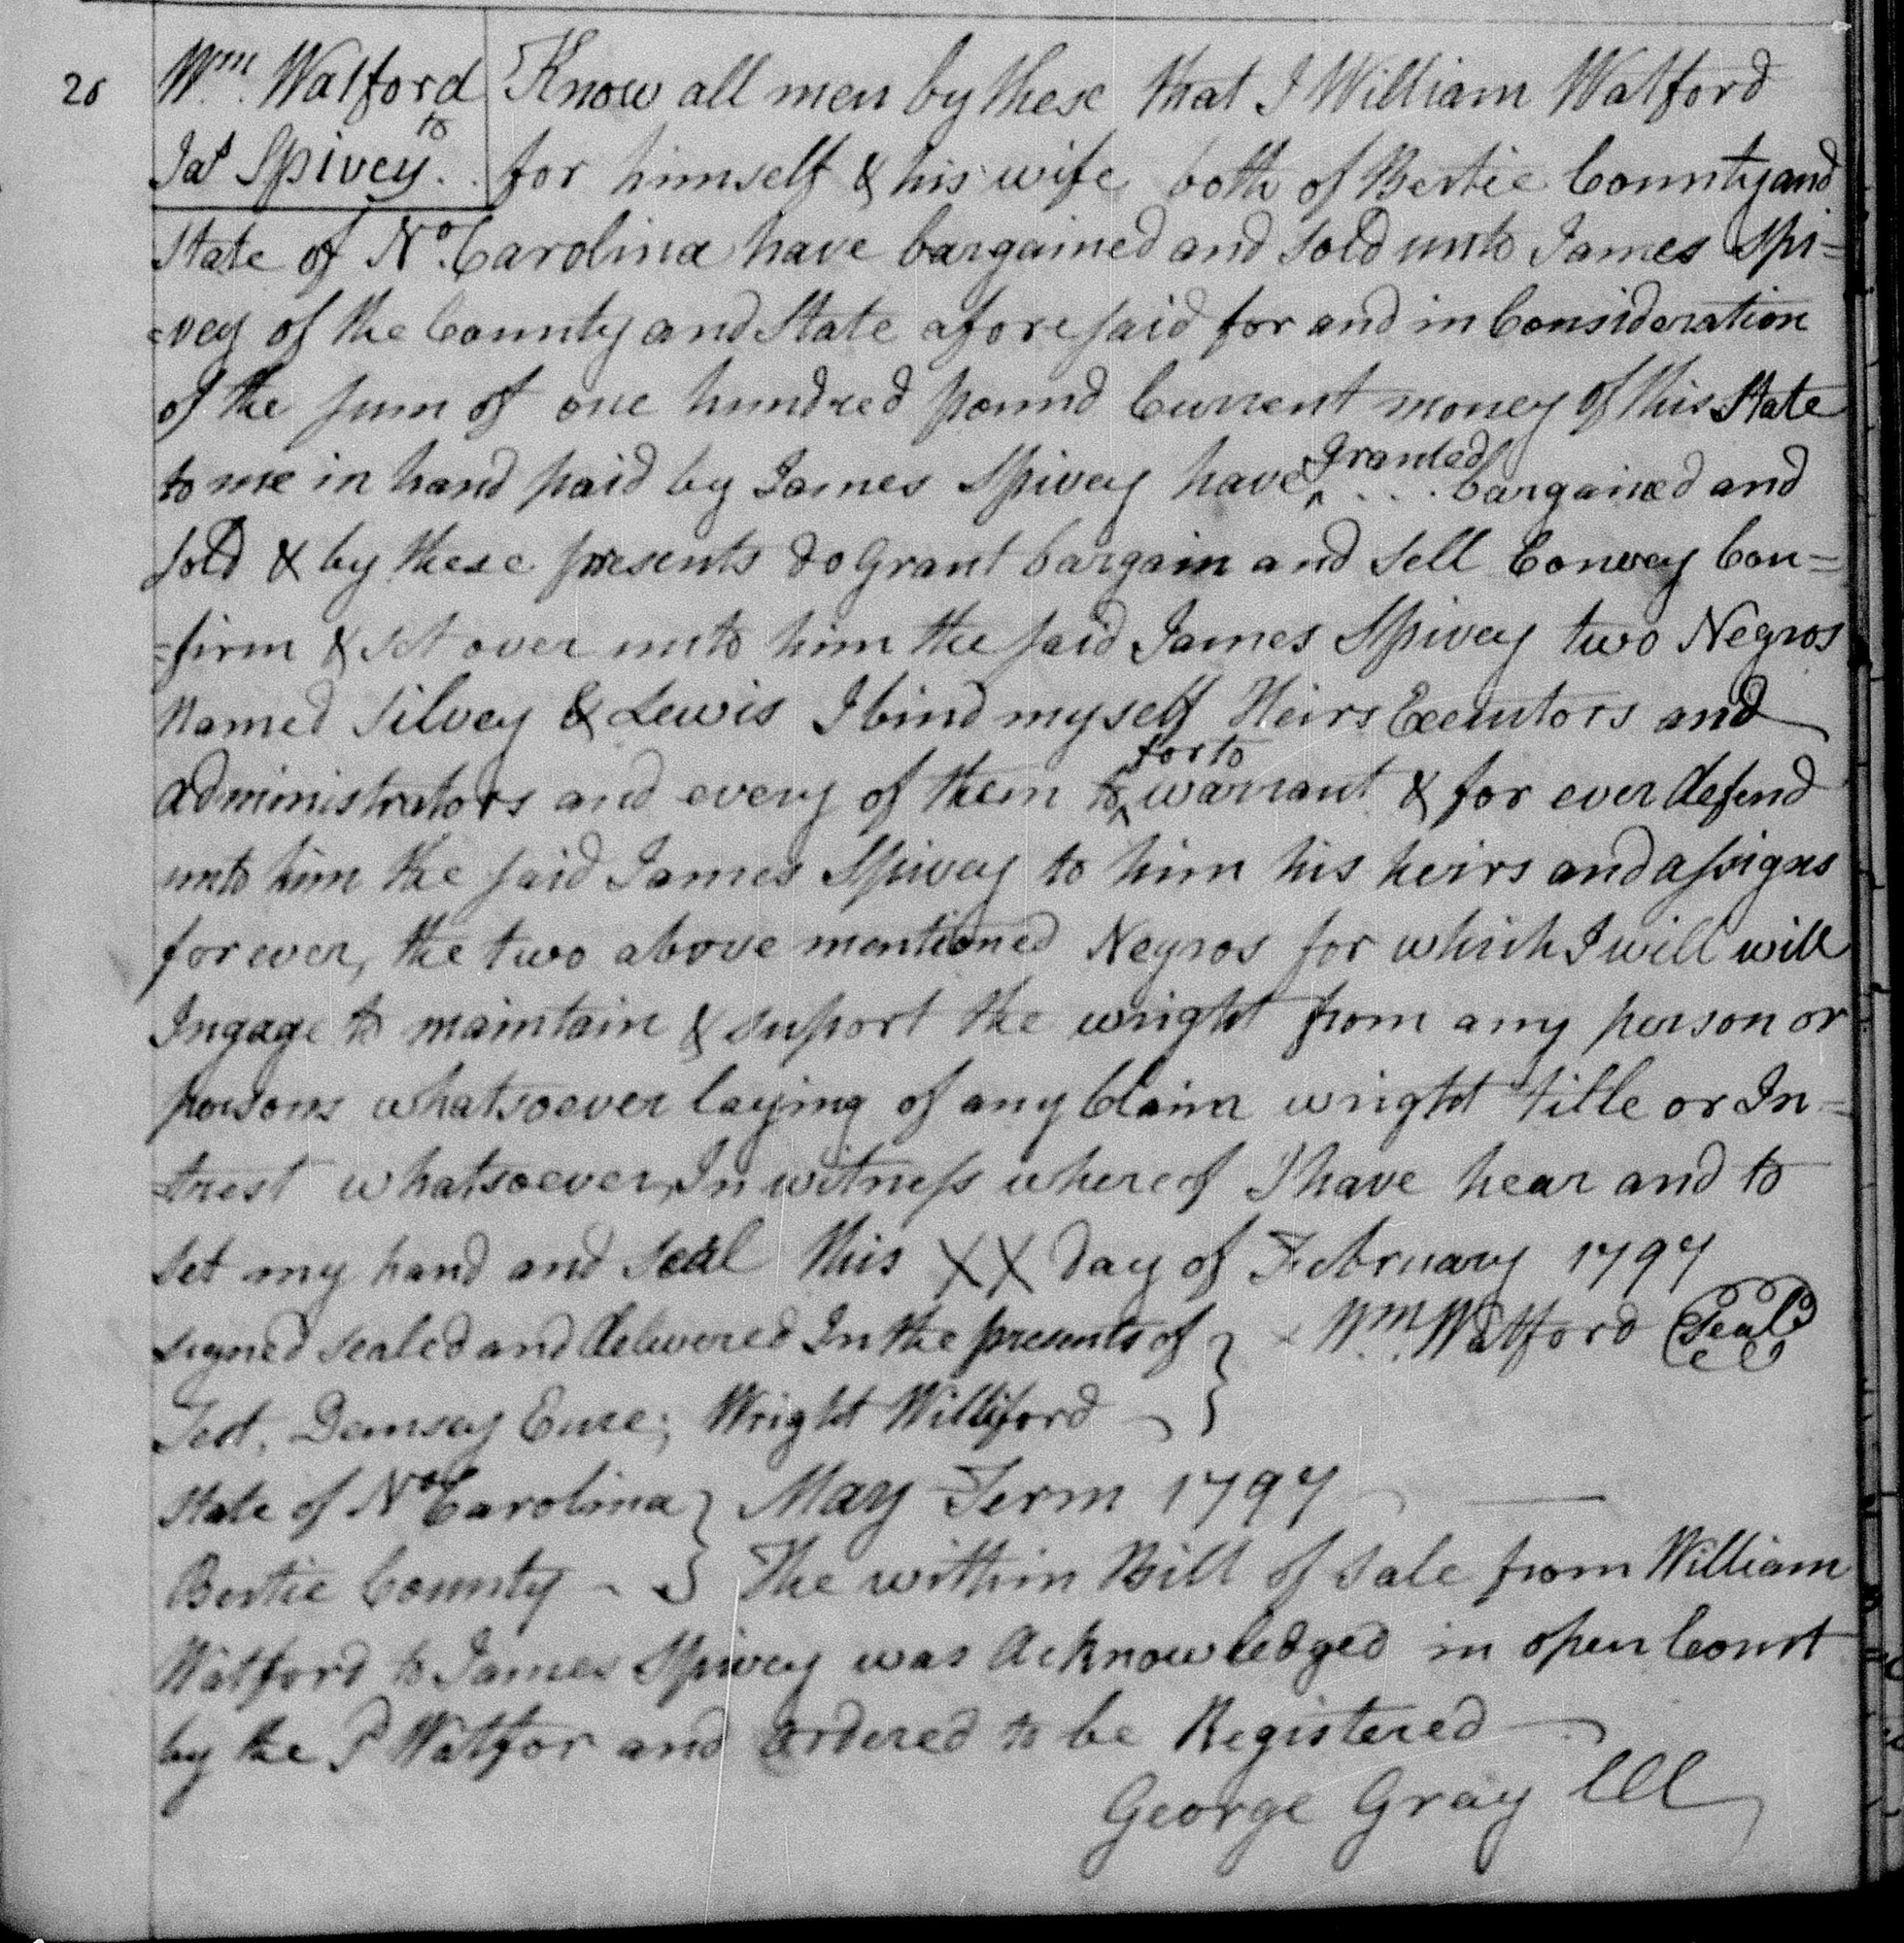 26
Wm. Watford
to
Jas Spivey..
Know all men by these that I William Watford
for himself & his wife both of Bertie County and
State of No. Carolina have bargained and sold unto James Spi=
=vey of the County and State aforesaid for and in Consideration
of the sum of one hundred pound Current money of this State
to me in hand paid by James Spivey have ^granted bargained and
sold & by these presents do Grant bargain and sell Convey Con=
=firm & set over unto him the said James Spivey two Negros
Named Silvey & Lewis I bind myself Heirs Executors and
administrators and every of them to ^for to warrant & for ever defend
unto him the said James Spivey to him his heirs and assigns
forever, the two above mentioned Negros for which I will will
Ingage to maintain & suport the wright from any person or
persons whatsoever laying of any Claim wright title or In=
=trest whatsoever, In witness whereof I have hear and to
set my hand and seal this XX day of February 1797
signed sealed and delivered In the presents of } Wm. Watford Seal
Test, Demsey Eure; Wright Williford }
State of No Carolina } May Term 1797
Bertie County } The within Bill of sale from William
Watford to James Spivey was Acknowledged in open Court
by the Sd Watfor and ordered to be Registered
George Gray CCC